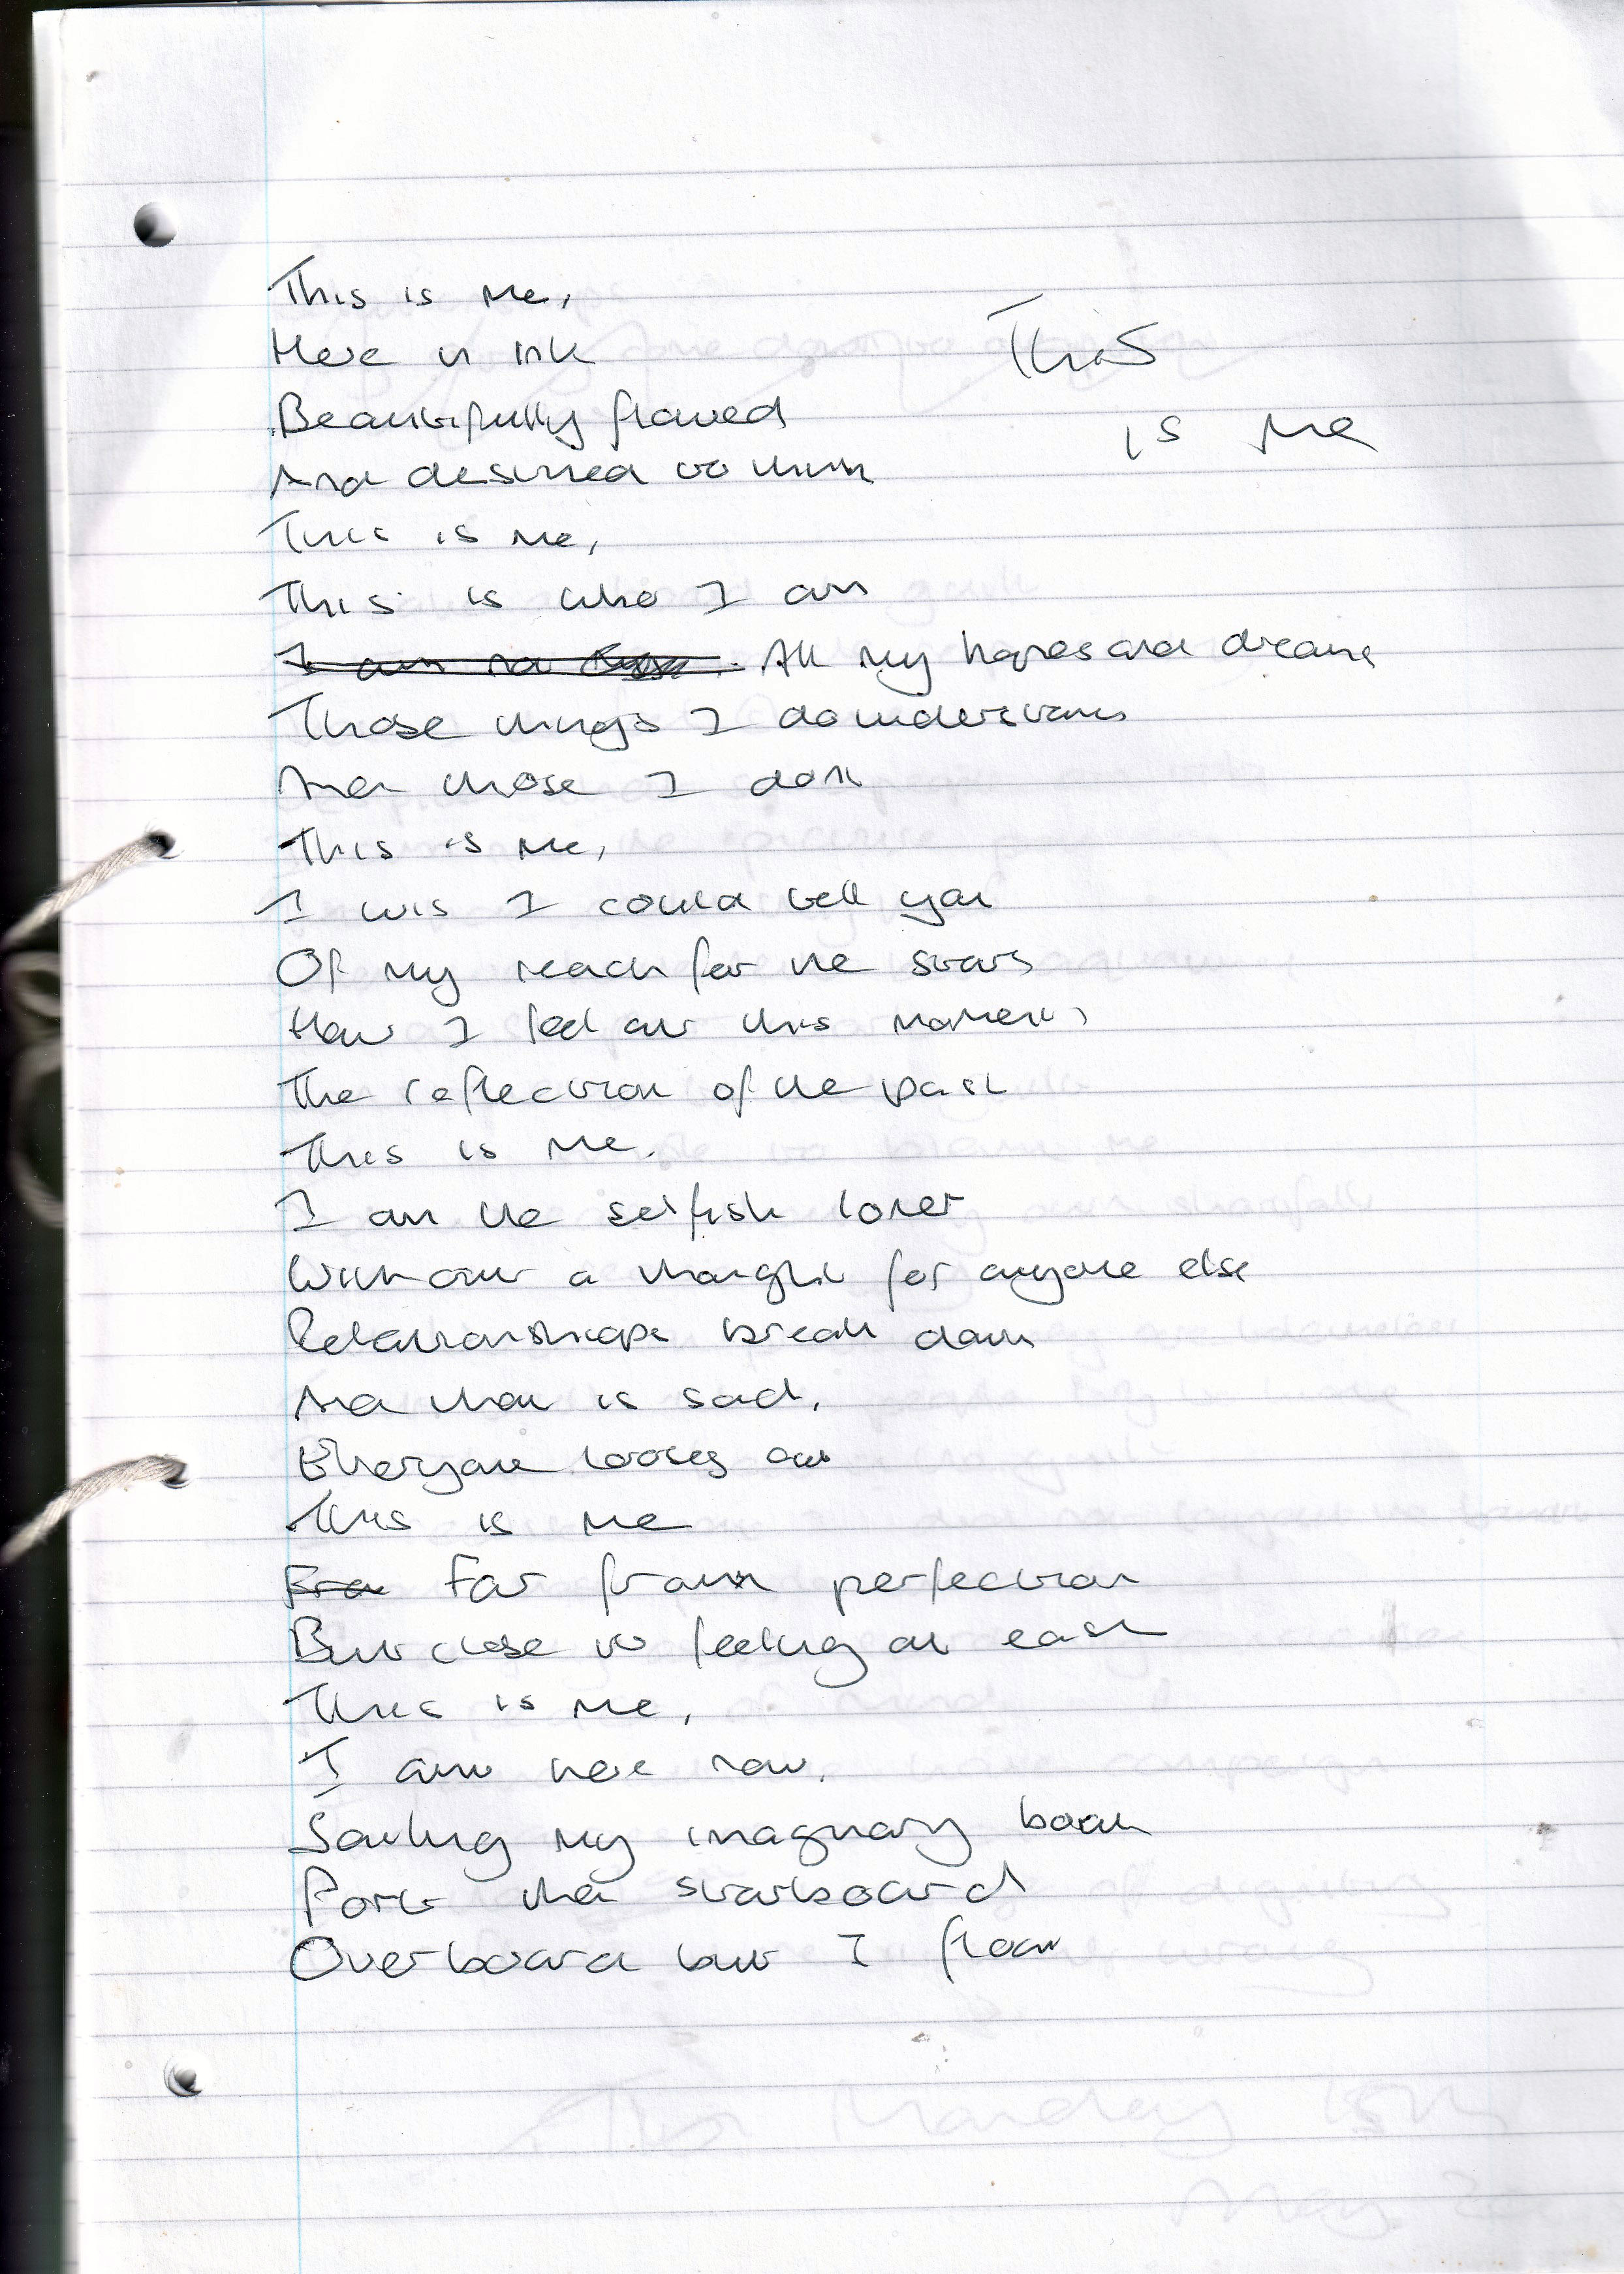 This is me,
Here in ink
This
Beautifully flawed
is me
And destined to think
This is me,
This is who I am
I am no All my hopes and dreams
Those things I do understand
And those I dont
This is me,
I wis I could tell you
Of my reach for the stars
How I feel at this moment,
The reflection of the past
This is me.
I am the selfish loner
Without a thought for anyone else
Relationships break down
And that is sad.
Everyone looses out
This is me
Far from perfection
But close to feeling at ease
This is me,
I am here now.
Sailing my imaginary boat
Port then starboard
Overboard but I float